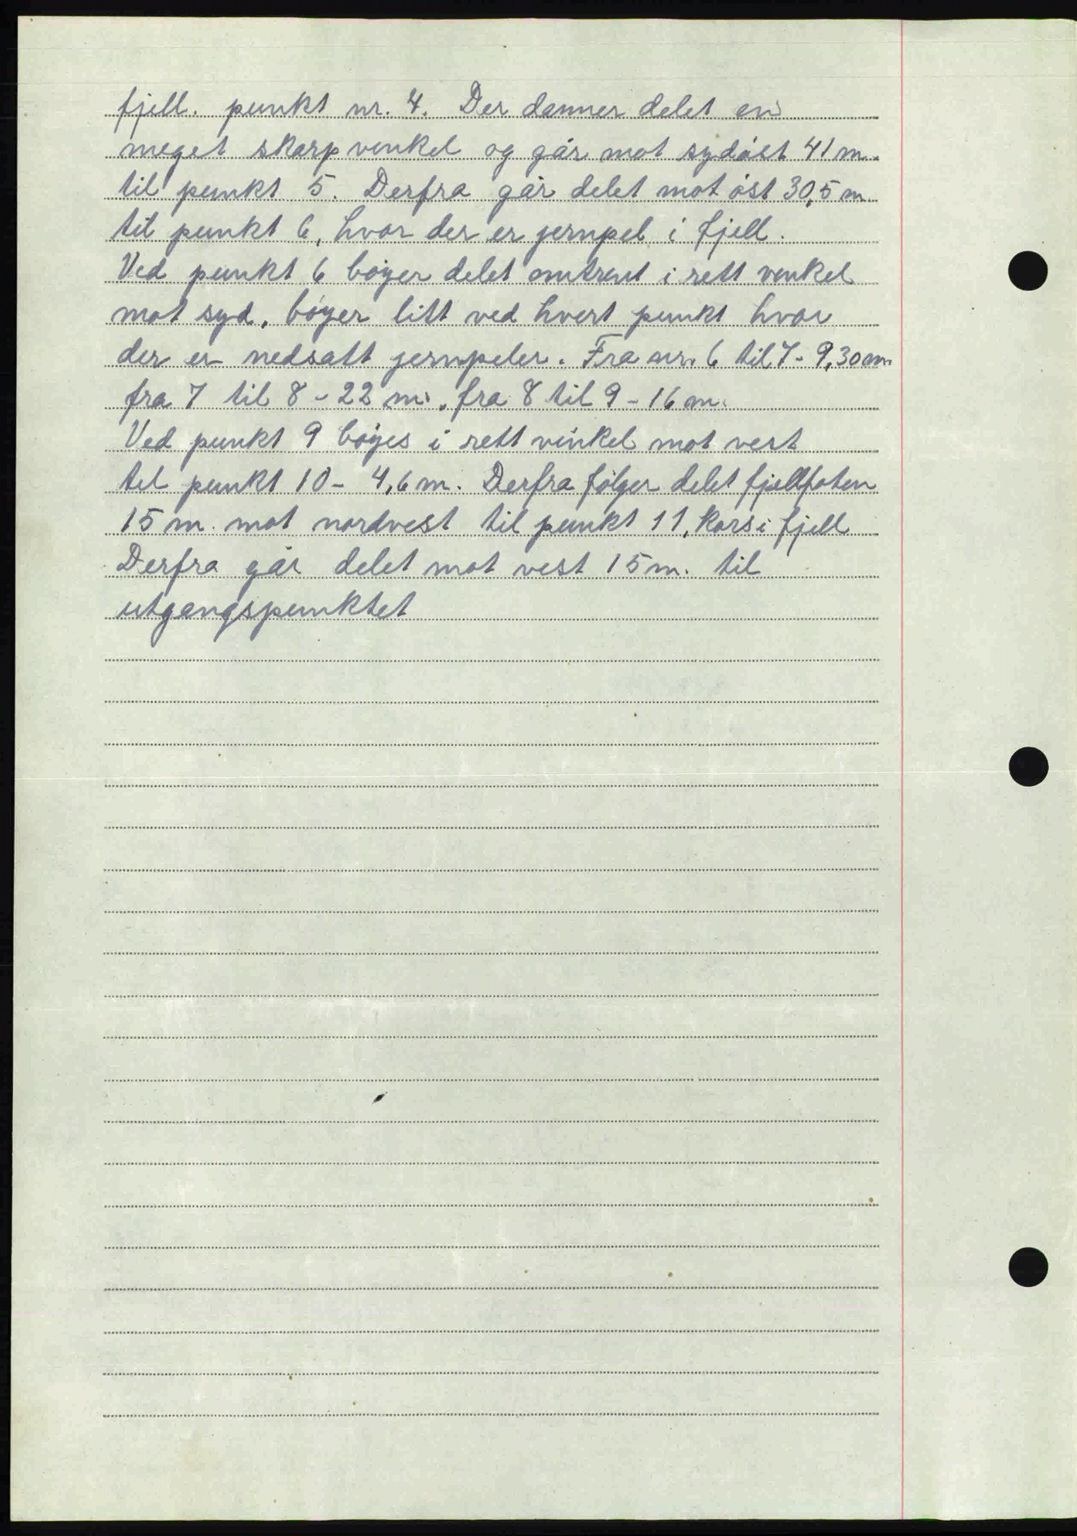 fjell. punkt nr. 4. Der danner delet en
meget skarp vinkel og går mot sydøst 41 m.
til punkt 5. Derfra går delet mot øst 30,5 m.
til punkt 6, hvor der er jernpel i fjell.
Ved punkt 6 bøyer delet omtrent i rett vinkel
mot syd, bøyer litt ved hvert punkt hvor
der er nedsatt jernpeler. Fra nr. 6 til 7 - 9,30 m.
fra 7 til 8 - 22 m., fra 8 til 9 - 16 m.
Ved punkt 9 bøyes i rett vinkel mot vest
til punkt 10 - 4,6 m. Derfra følger delet fjellfoten
15 m. mot nordvest til punkt 11, kors i fjell
Derfra går delet mot vest 15 m. til
utgangspunktet